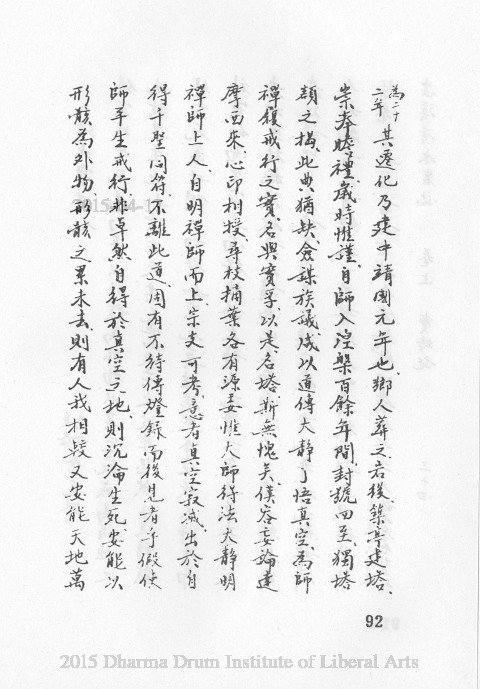 為二十
二年其遷化乃建中靖國元年也鄉人葬之岩後築亭建塔
崇奉瞻禮歲時惟謹自師入涅槃百餘年間封號四至獨塔
顏之揭此典猶缺僉謀族議咸以道傳大靜了悟真空為師
禪履戒行之實名與實孚以是名塔斯無愧矣僕容妄論達
摩西來心印相授尋枝摘葉各有源委惟大師得法大靜明
禪師上人自明禪師而上宗支可考意者真空寂滅出於自
得千聖同符不離此道固有不待傳燈錄而後見者乎假使
師平生戒行非卓然自得於真空之地則沉淪生死安能以
形骸為外物形骸之累未去則有人我相較又安能天地萬
92
2015-04-1
2015 Dharma Drum Institute of Liberal Arts